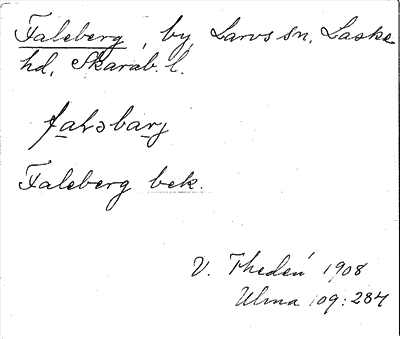 Faleberg, by, Larvs sn, Laske
hd, Skarab. l.
falsbarj
Faleberg bek.
V. Thedén 1908
Ulma 109:284